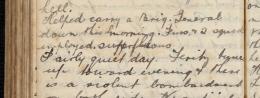 hell.
Helped carry a Brig. General
down this morning. Two & 2 squad
employed. superfluous
Fairly quiet day. Fritz
up toward evening & there
is a violent bombardment